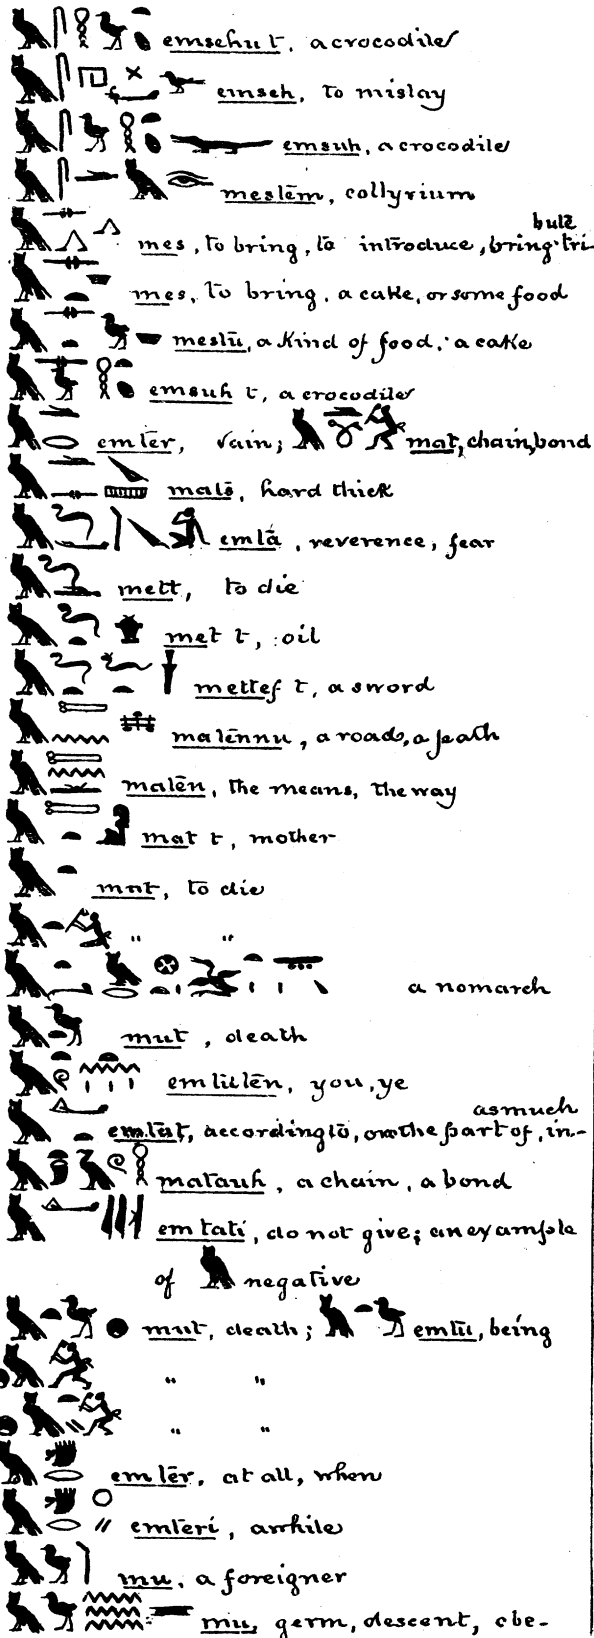 emsehu t, a crocodile
emseh, to mislay
emsuh, a crocodile
mestēm, collyrium
bute
mes, to bring, to introduce, bring tri-
mes, to bring, a cake, or some food
mestū, a kind of food, a cake
emsuh t, a crocodile
emtēr, vain; mat, chain, bond
mats, hard thick
emtā, reverence, fear
mett, to die
met t, oil
mettef t, a sword
matēnnu, a road, a path
matēn, the means, the way
mat t, mother
mat, to die
" "
a nomarch
mut, death
emtutēn, you, ye
as much
emtut, according to, on the part of, in-
matauh, a chain, a bond
em tati, do not give; an example
of negative
mut, death; emtū, being
" "
" "
em tēr, at all, when
emteri, awhile
mu, a foreigner
mu, germ, descent, c be-